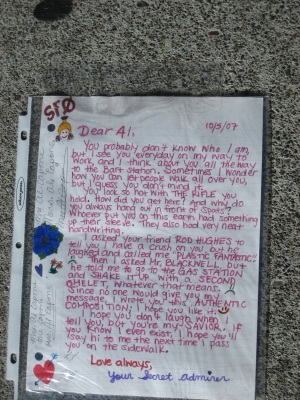 SFO
10/5/07
Dear Al,
You probably don't know who I am,
but I see you everyday on my way to
work, and I think about you all the way
to the Bart Station. Sometimes I wonder
how you can let people walk all over you,
but I guess you don't mind it.
You look so hot WITH THE RIFLE you
held. How did you get here? And why do
you always hang out in front of
Whoever put you on this earth had something
up their sleeve. They also had very neat
handwriting.
I asked your friend ROD HUGHES to
tell you I have a crush on you but he
laughed and called me "PLASTIC FANTASTIC"
Then I asked Mr. BLACKWELL, but
he told me to go to the GAS STATION
and SHAKE IT UP WITH A SECOND
OMELET, whatever that means.
Since no one would give you my
message, I wrote you this AUTHENTIC
COMPOSITION! I hope you like it.
I hope you don't laugh when I
tell you, but you're my SAVIOR. If
you know I even exist, I hope you'll
say hi to me the next time I pass
you on the sidewalk.
Love always,
Your Secret admirer